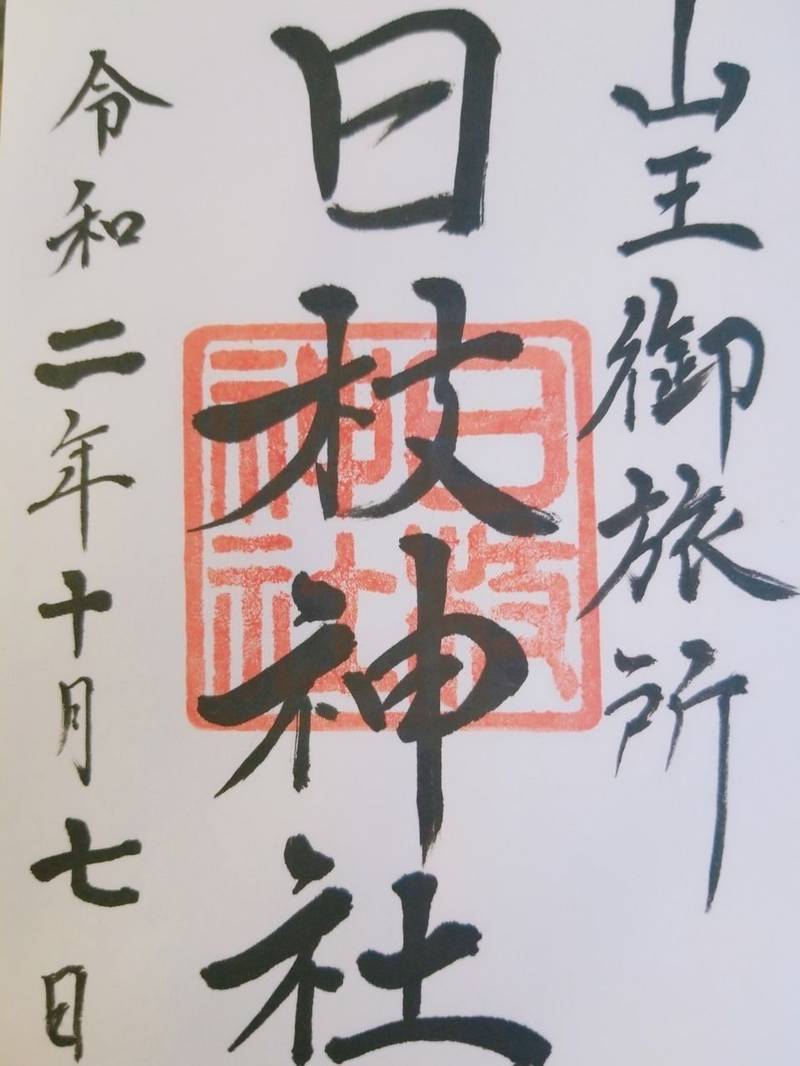 山王御旅所
日枝神社
日枝神社
令和二年十月七日